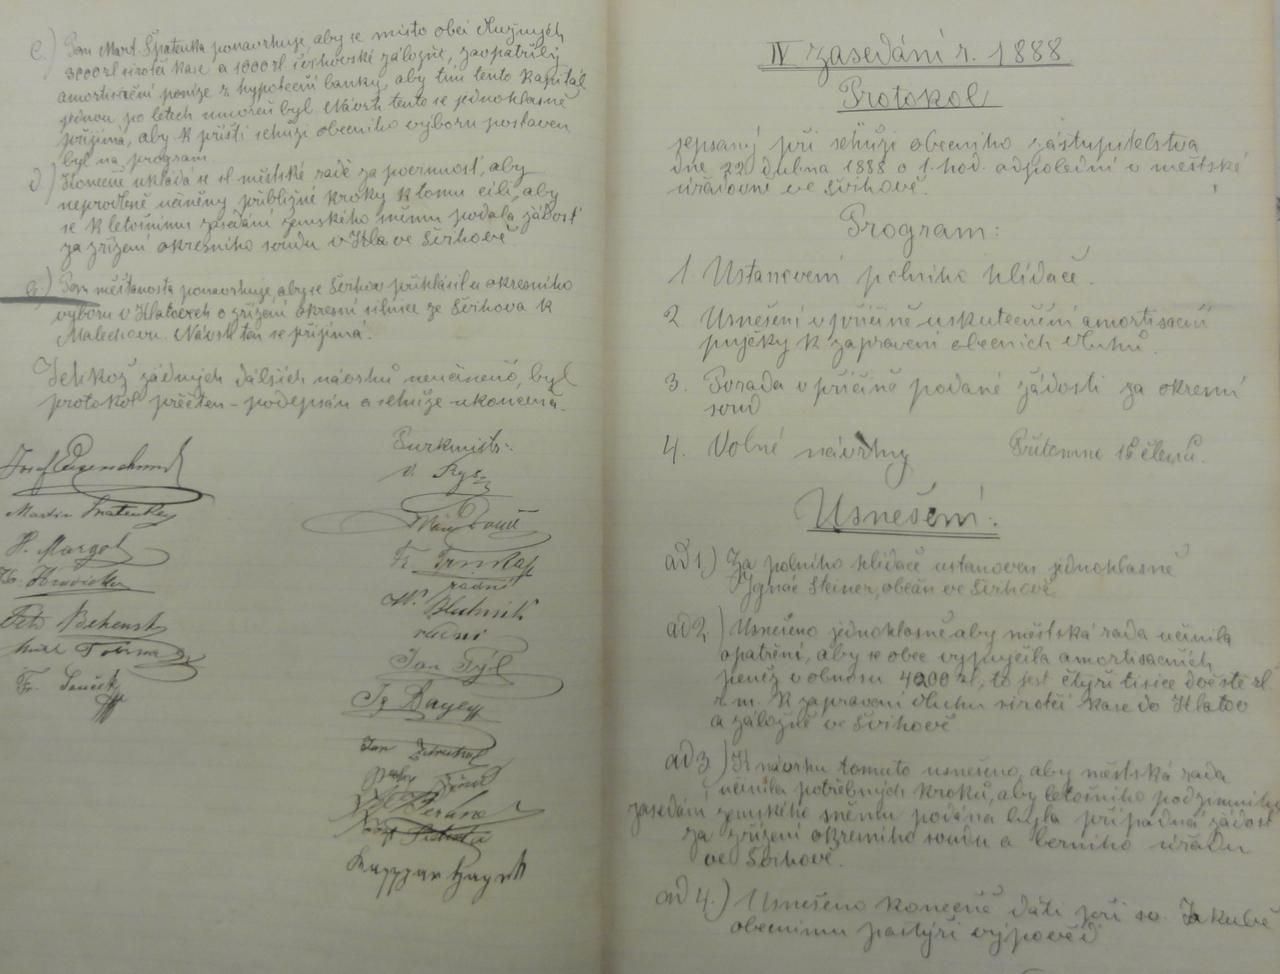 c.) Pan Mart. Špatenka ponavrhuje, aby se místo obcí dlužných
3000 zl sirotčí kase a 1000 zl švihovské záložně, zaopatřily
amortisační peníze z hypoteční banky, aby tím tento kapitál
jednou po letech umořen byl. Návrh tento se jednohlasně
přijímá, aby k příští schůzi obecního výboru postaven
byl na program.
d.) Konečně ukládá se sl. městské radě za povinnost, aby
neprodleně učiněny přibližné kroky k tomu cíli, aby
se k letošnímu zasedání zemského sněmu podala žádost
za zřízení okresního soudu ve Švihově.
e.) Pan měšťanosta ponavrhuje, aby se Švihov přihlásil u okresního
výboru v Klatovech o zřízení okresní silnice ze Švihova k
Malechovu. Návrh ten se přijímá.
Jelikož žádných dalších návrhů neučiněno, byl
protokol přečten - podepsán a schůze ukončena.
Purkmistr:
Martin Špatenka
H. Margot
radní
radní
Jan Týl
Fr. Bayer
IV zasedání r. 1888
Protokol
sepsaný při schůzi obecního zástupitelstva
dne 22 dubna 1888 o 1. hod. odpolední v městské
úřadovně ve Švihově.
Program:
1. Ustanovení polního hlídače.
2. Usnešení v příčině uskutečnění amortisační
půjčky k zapravení obecních dluhů.
3. Porada v příčině podané žádosti za okresní
soud
4. Volné návrhy Přítomno 15 členů.
Usnešení:
ad 1.) Za polního hlídače ustanoven jednohlasně
Ignác Steiner, občan ve Švihově
ad 2.) Usnešeno jednohlasně aby městská rada učinila
opatření, aby se obec vypůjčila amortisačních
peněz v obnosu 4200 zl, to jest čtyři tisíce dvěstě zl
r. m. k zapravení dluhu sirotčí kase do Klatov
a záložně ve Švihově
ad 3.) K návrhu tomuto usnešeno, aby městská rada
učinila potřebných kroků, aby letošního podzimního
zasedání zemského sněmu podána byla případná žádost
za zřízení okresního soudu a berního úřadu
ve Švihově.
ad 4.) Usnešeno konečně dáti při sv. Jakubě
obecnímu pastýři výpověď